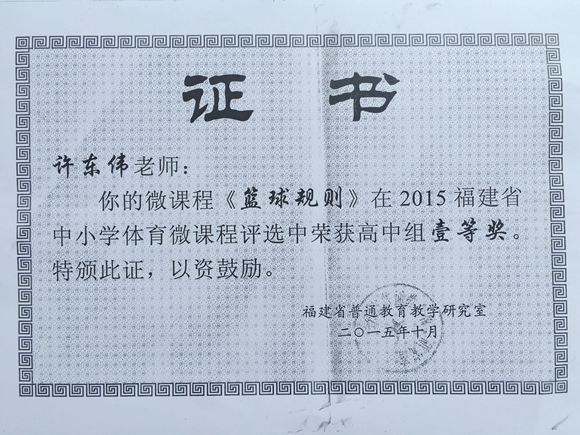 证 书
许东伟老师：
你的微课程《篮球规则》在2015福建省
中小学体育微课程评选中荣获高中组壹等奖。
特颁此证，以资鼓励。
福建省普通教育教学研究室
二〇一五年十月